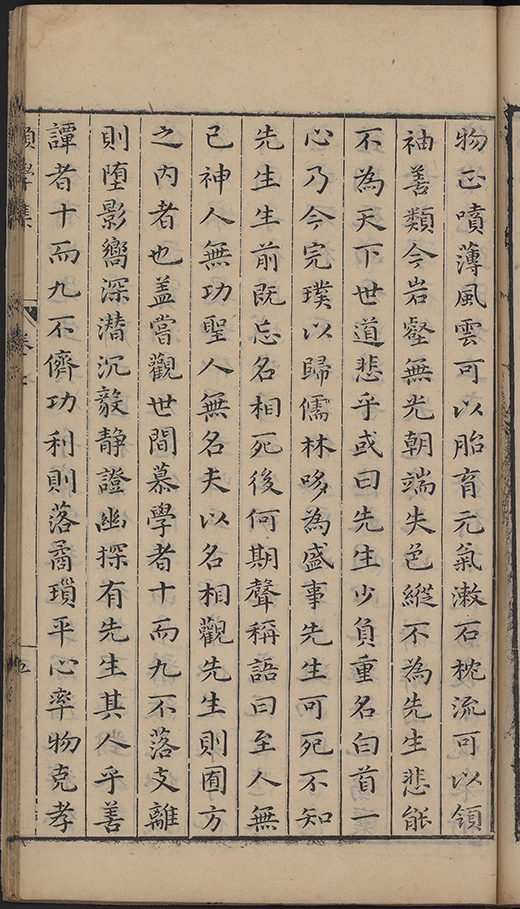 物正噴薄風雲可以胎育元氣漱石枕流可以領
袖善類今岩壑無光朝端失色縱不為先生悲能
不為天下世道悲乎或曰先生少負重名白首一
心乃今完璞以歸儒林哆為盛事先生可死不知
先生生前既忘名相死後何期聲稱語曰至人無
己神人無功聖人無名夫以名相觀先生則囿方
之內者也盖嘗觀世間慕學者十而九不落支離
則墮影嚮深潛沉毅静證幽探有先生其人乎善
譚者十而九不儕功利則落矞瑣平心率物克孝
五